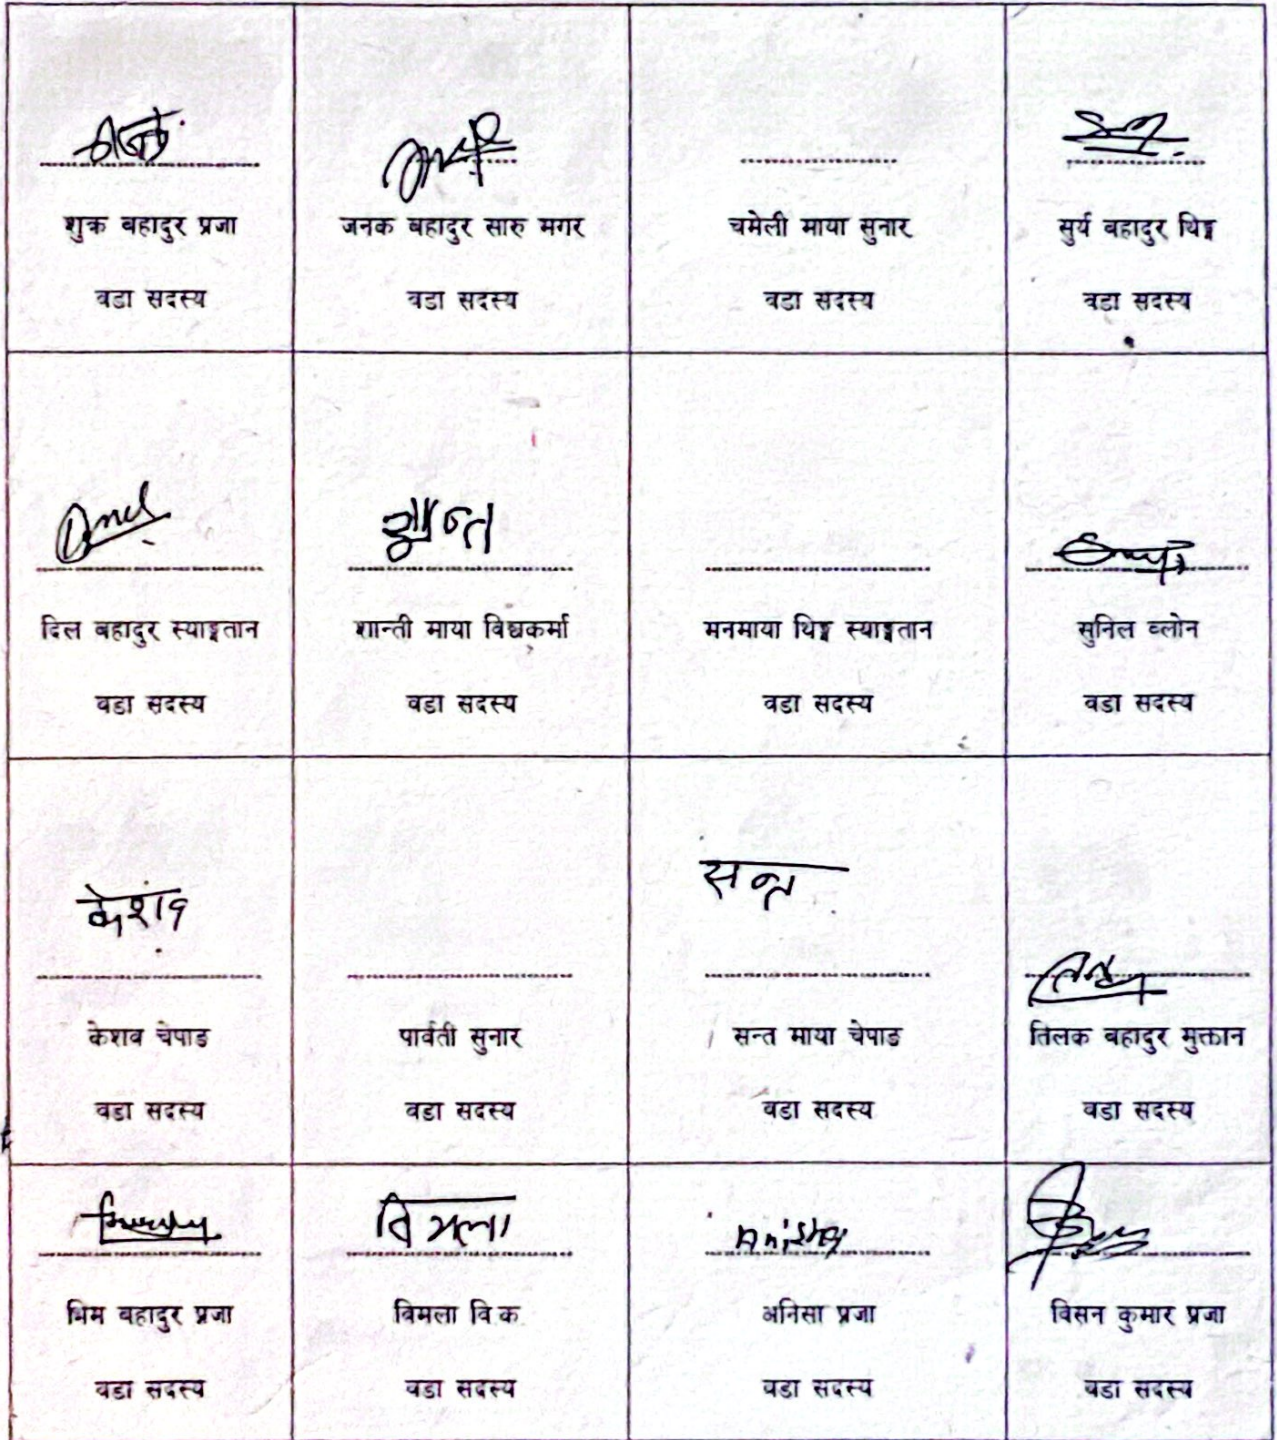 शुक्र बहादुर प्रजा
वडा सदस्य
जनक बहादुर सारु मगर
वडा सदस्य
चमेली माया सुनार
वडा सदस्य
सुर्य बहादुर थिङ्ग
वडा सदस्य
दिल बहादुर स्याङ्गतान
वडा सदस्य
शान्ती माया विश्वकर्मा
वडा सदस्य
मनमाया थिङ्ग स्याङ्गतान
वडा सदस्य
सुनिल ब्लोन
वडा सदस्य
केशव
केशव चेपाङ
वडा सदस्य
पार्वती सुनार
वडा सदस्य
सन्त
सन्त माया चेपाङ
वडा सदस्य
तिलक बहादुर मुक्तान
वडा सदस्य
भिम बहादुर प्रजा
वडा सदस्य
विमला
विमला वि.क
वडा सदस्य
अनिसा प्रजा
वडा सदस्य
विसन कुमार प्रजा
वडा सदस्य